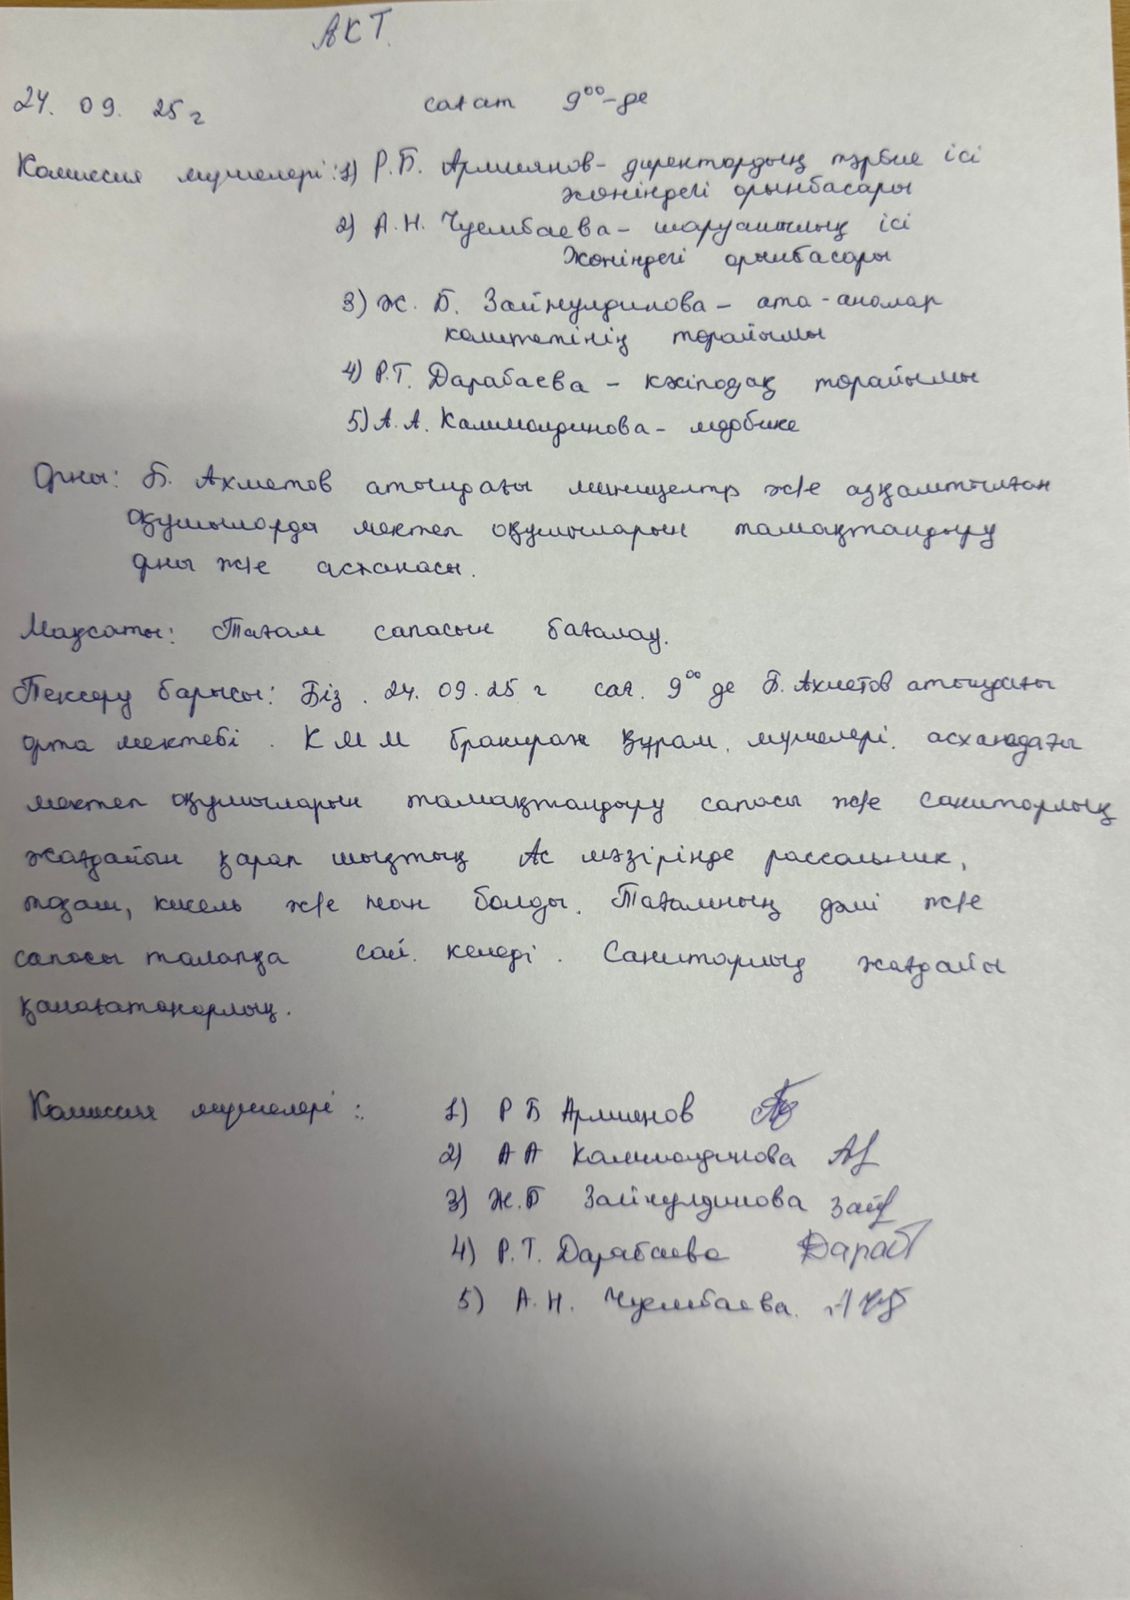 АКТ.
24. 09. 25 г сағат 9⁰⁰-де
Комиссия мүшелері: 1) Р.Б. Армиянов- директордың тәрбие ісі
жөніндегі орынбасары
2) А.Н. Чуембаева - шаруашылық ісі
Жөніндегі орынбасары
3) Ж. Б. Зайнулдинова - ата-аналар
комитетінің төрайымы
4) Р.Т. Дарабаева - кәсіподақ төрайымы
5) А.А. Калимолдинова - медбике
Орны: Б. Ахметов атындағы миницентр ж/е аз қамтылған
оқушыларды мектеп оқушыларын тамақтандыру
орны ж/е асханасы.
Мақсаты: Тағам сапасын бағалау.
Тексеру барысы: Біз. 24. 09. 25 г сағ. 9⁰⁰ де Б. Ахметов атындағы
орта мектебі. КММ бракираж құрам. мүшелері. асханадағы
мектеп оқушыларын тамақтандыру сапасы ж/е санитарлық
жағдайын қарап шықтық Ас мәзірінде рассольник,
тоқаш, кисель ж/е нан болды. Тағамның дәмі ж/е
сапасы талапқа сай. келеді. Санитарлық жағдайы
қанағатанарлық.
Комиссия мүшелері:
1) Р Б Армиянов
2) А А Калимолдинова
3) Ж.Б Зайнулдинова Зай
4) Р.Т. Дарабаева Дараб
5) А.Н. Чуембаева.